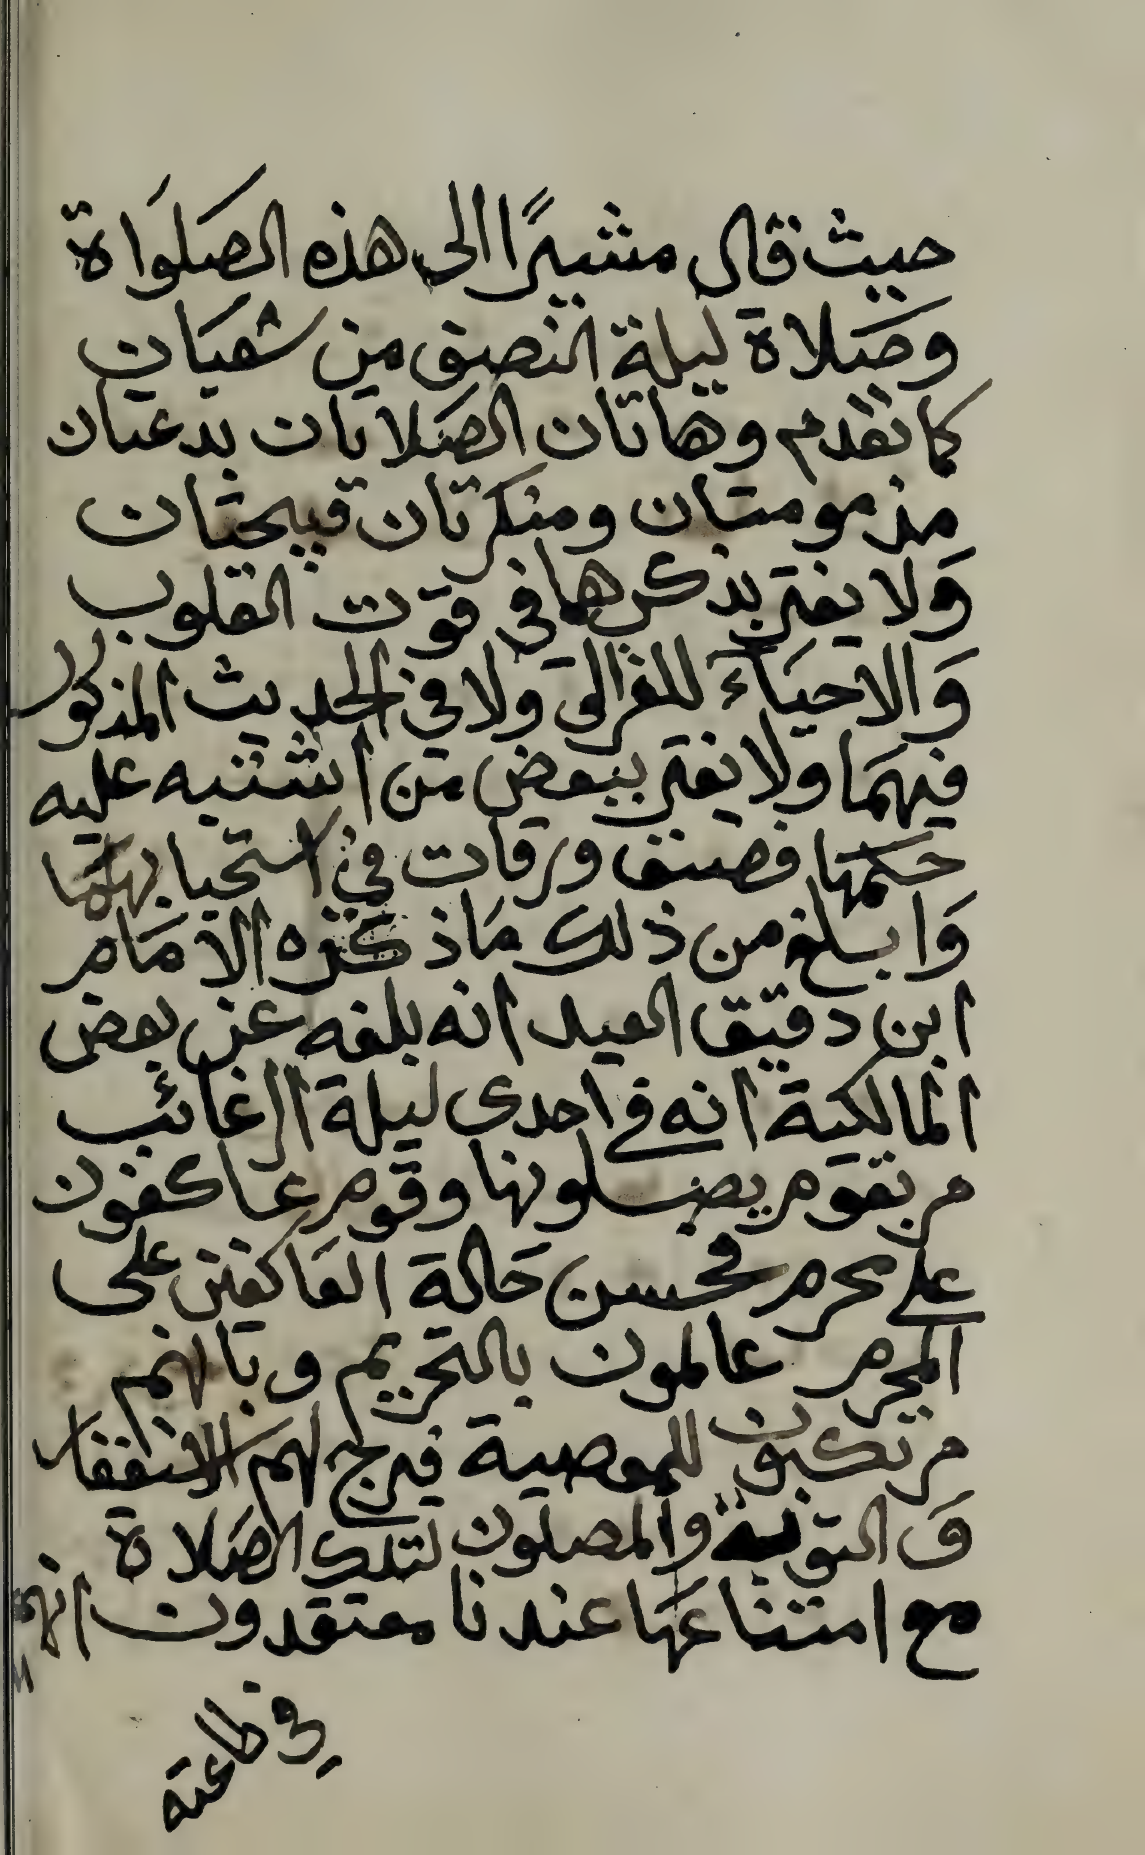 حيث قال مشيرًا الى هذه الصَلوَاة
وصَلاة ليلة النصف من شعبَان
كما تقدم وهاتان الصَلاتان بدعتان
مذمومتان ومنكرتان قبيحتان
وَلا يغتر بذكرهما في قوت القلوب
وَالاحيَاءَ للغزالى ولا في الحديث المذكور
فيهمَا ولا يغتر ببعض من اشتبه عليه
حكمها فصنف ورقات في استحبابهمَا
وَابلغ من ذلك مَا ذكره الامَام
ابن دقيق العيد انه بلغه عن بعض
المالكية انه في احدى ليلة الرغائب
مر بقوم يصلونها وقوم عاكفون
على محرم فحسن حَالة العَاكفين على
المحرم عالمون بالتحريم وبانهم
مرتكبون للمعصية فيرجى لهم الاستغفار
وَ التوبة والمصلون لتلك الصَلاة
مع امتناعهَا عندنا معتقدون انهم
في طاعته